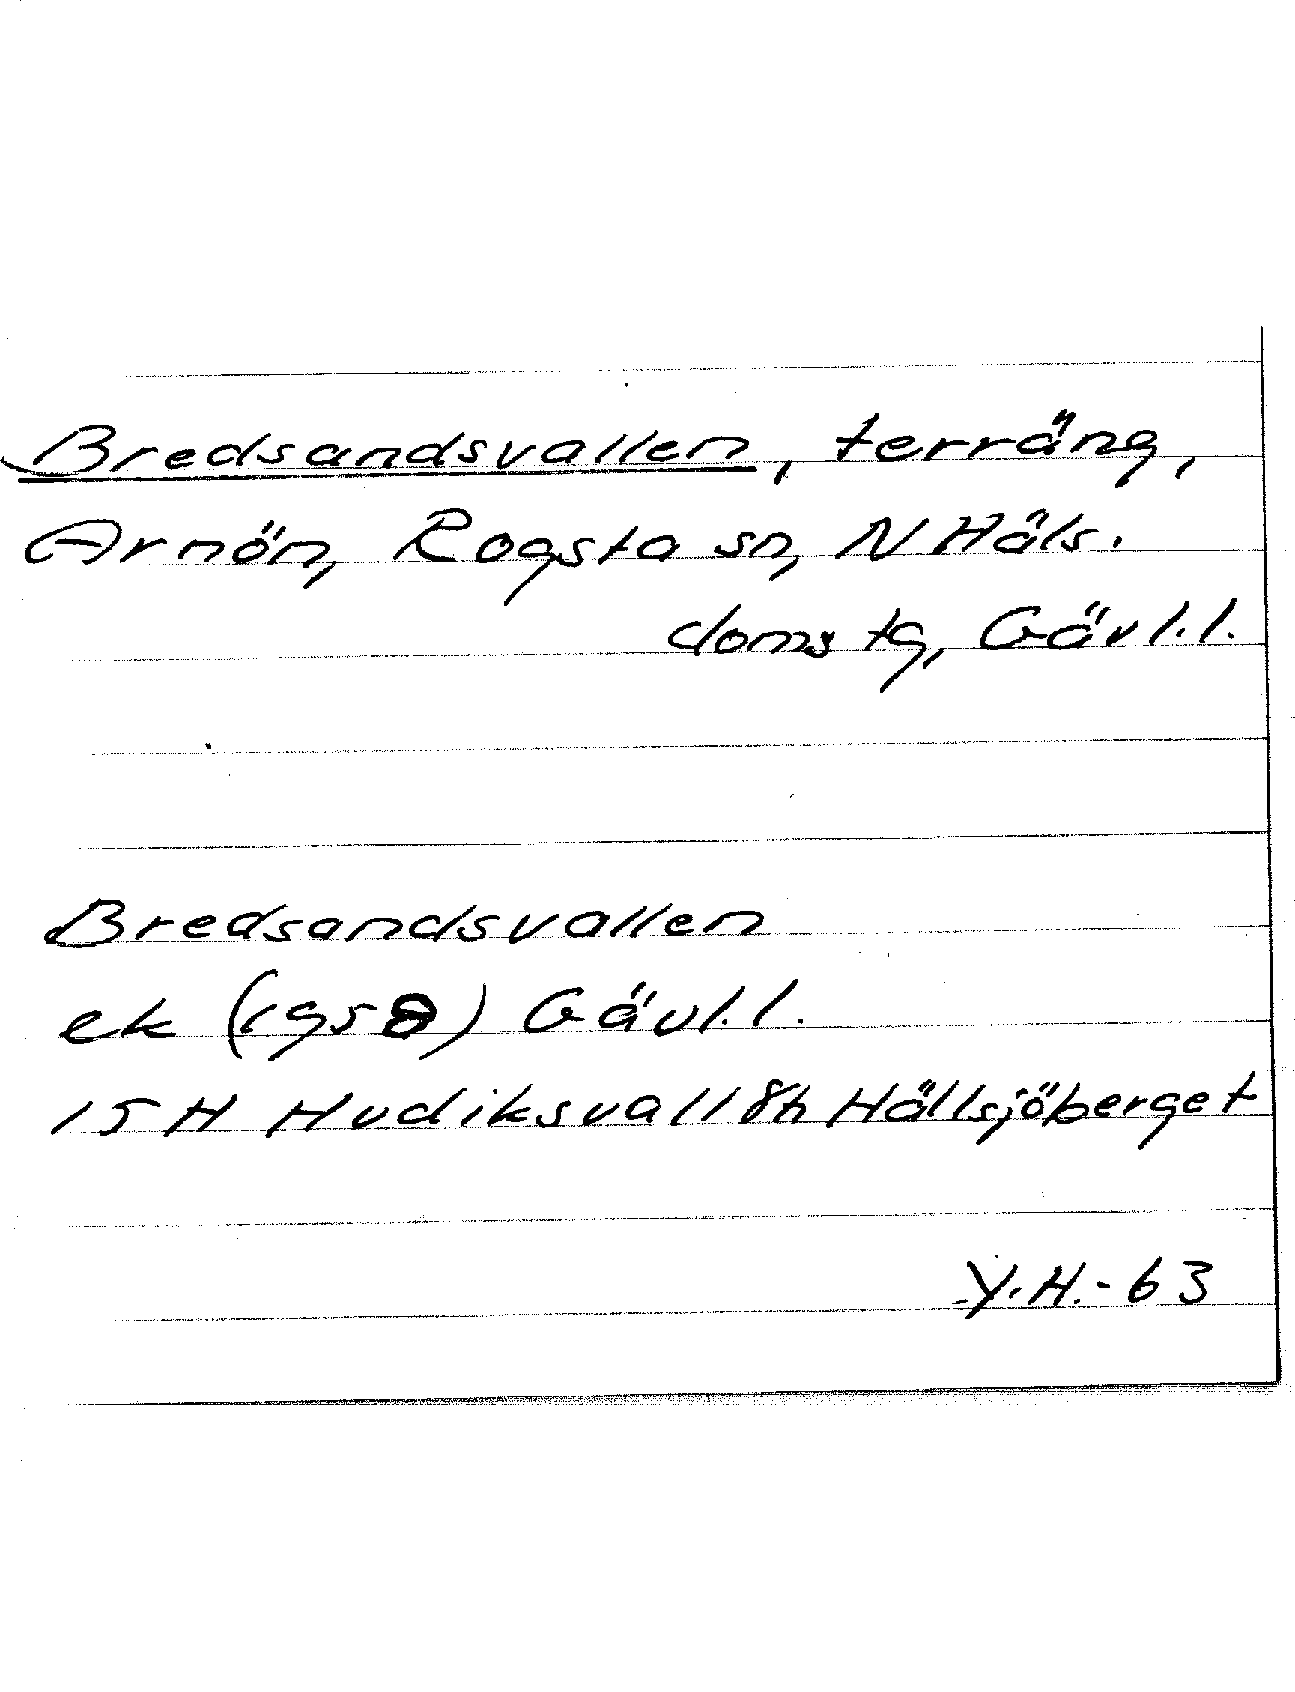 Bredsandsvallen, terräng,
Arnön, Rogsta sn, N Häls.
doms tg, Gävl.l.
Bredsandsvallen
ek (1958) Gävl.l.
15 H Hudiksvall 8h Hällsjöberget
Y.H.-63